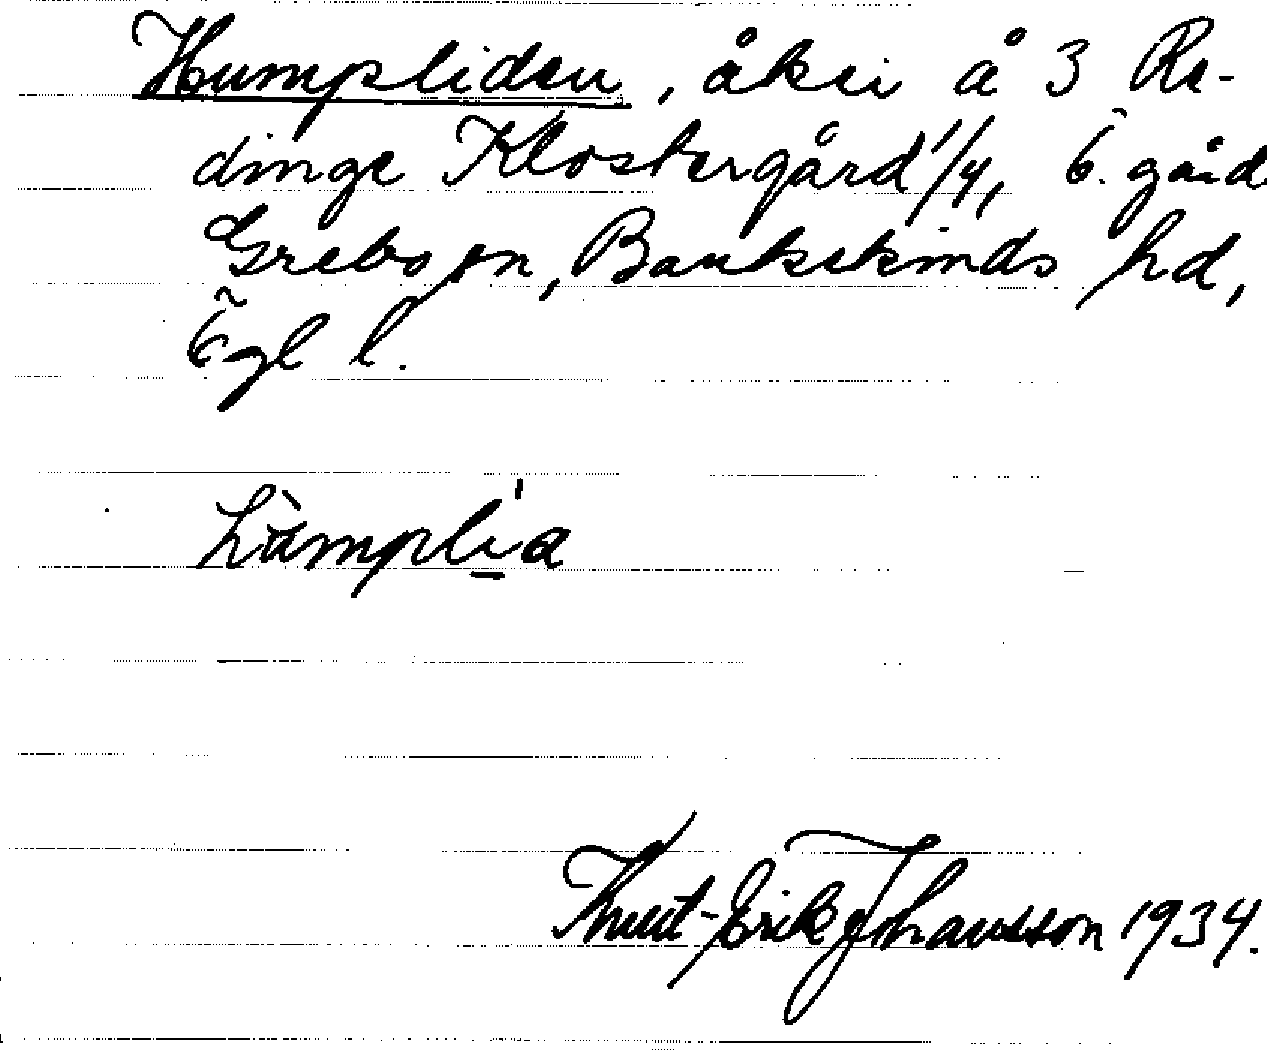 Humpliden, åker å 3 Re-
dinge Klostergård 1/4, ö. gård.
Grebo sn, Bankekinds hd,
Ögl l.
hàmpli̱'a
Knut-Erik Johansson 1934.